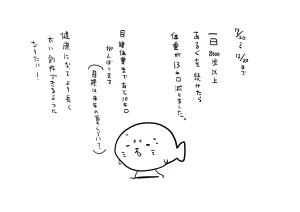 7/20〜
12/20まで
一日8000歩以上
あるくを続けたら
体重が13キロ減りました。
目標体重まであと10キロ
がんばります
(目標は来年の夏くらいまで)
健康になってより長く
太い創作できるように
なりたい!